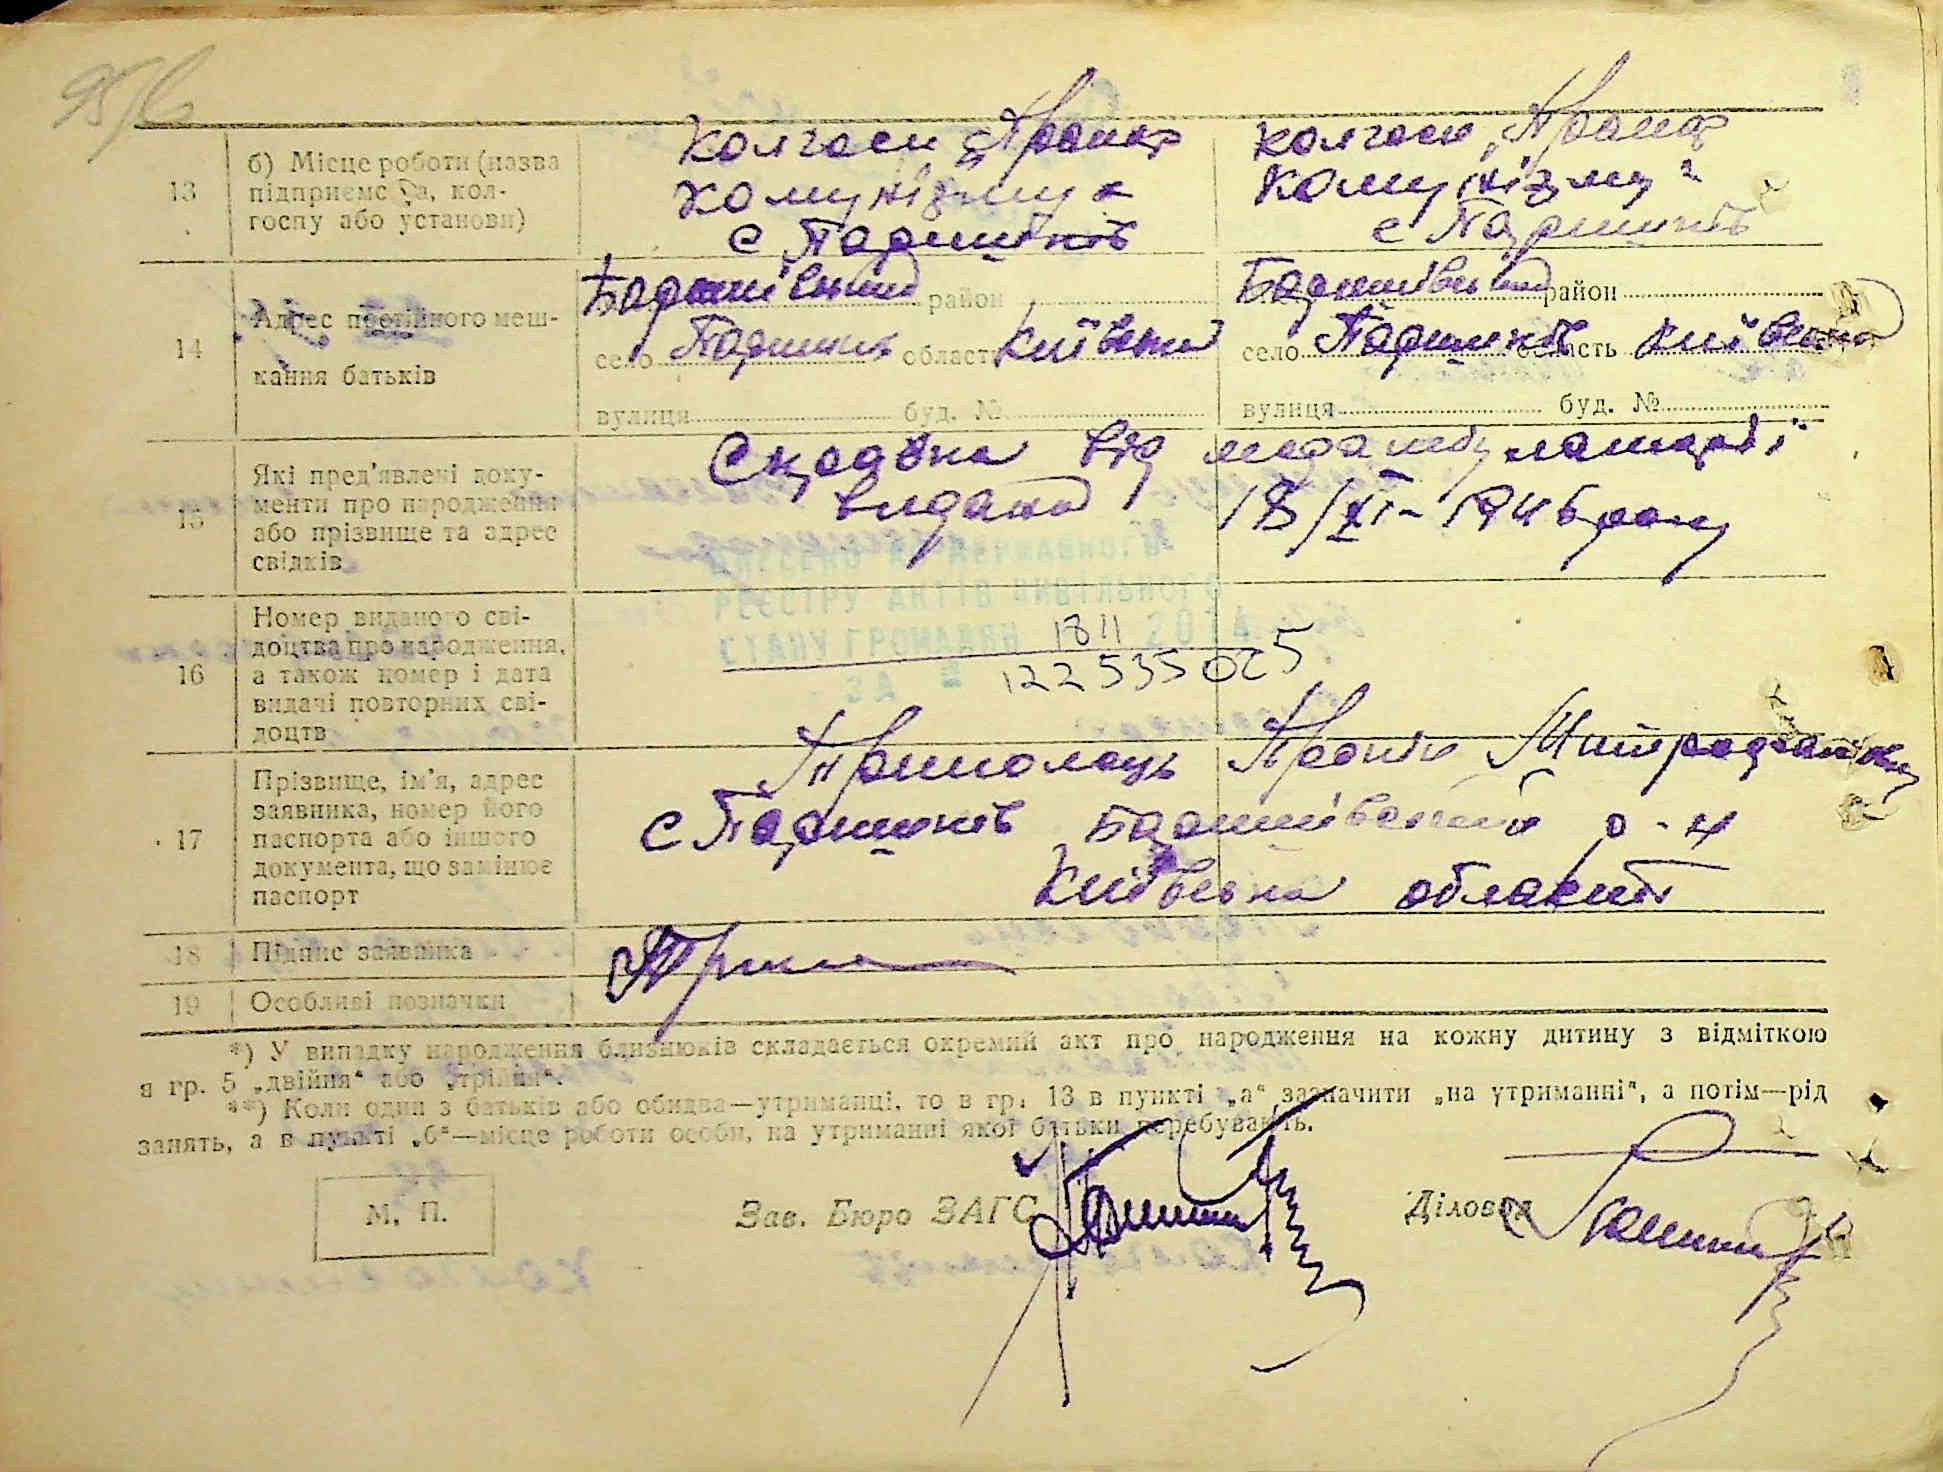 95/6
13
б) Місце роботи (назва
підприємства, кол-
госпу або установи)
колгосп „Прапор
комунізму“
с Паришків
колгосп „Прапор
комунізму“
с Паришків
14
Адрес постійного меш-
кання батьків
Баришівський район
село Паришків область Київська
вулиця буд. №
Баришівський район
село Паришків область Київська
вулиця буд. №
15
Які пред'явлені доку-
менти про народження
або прізвище та адрес
свідків
Справка від
видана 18/XI-1946 року
ВНЕСЕНО ДО ДЕРЖАВНОГО
РЕЄСТРУ АКТІВ ЦИВІЛЬНОГО
СТАНУ ГРОМАДЯН 1811 2014
ЗА № 122535025
16
Номер виданого сві-
доцтва про народження,
а також номер і дата
видачі повторних сві-
доцтв
17
Прізвище, ім'я, адрес
заявника, номер його
паспорта або іншого
документа, що замінює
паспорт
с Паришків Баришівський р-н
Київська область
18
Підпис заявника
19
Особливі позначки
*) У випадку народження близнюків складається окремий акт про народження на кожну дитину з відміткою
в гр. 5 „двійня“ або „трійня“.
**) Коли один з батьків або обидва—утриманці, то в гр. 13 в пункті „а“ зазначити „на утриманні“, а потім—рід
занять, а в пункті „б“—місце роботи особи, на утриманні якої батьки перебувають.
М. П.
Зав. Бюро ЗАГС
Діловод